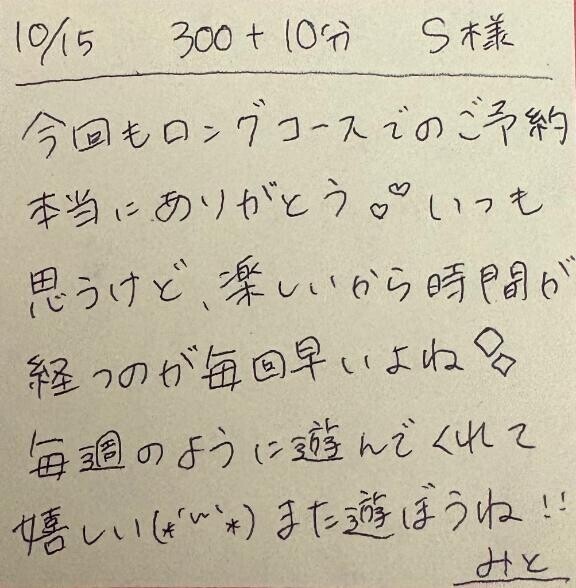 10/15 300+10分 S様
今回もロングコースでのご予約
本当にありがとう♡♡ いつも
思うけど、楽しいから時間が
経つのが毎回早いよね
毎週のように遊んでくれて
嬉しい(*´ω`*) また遊ぼうね!!
みと